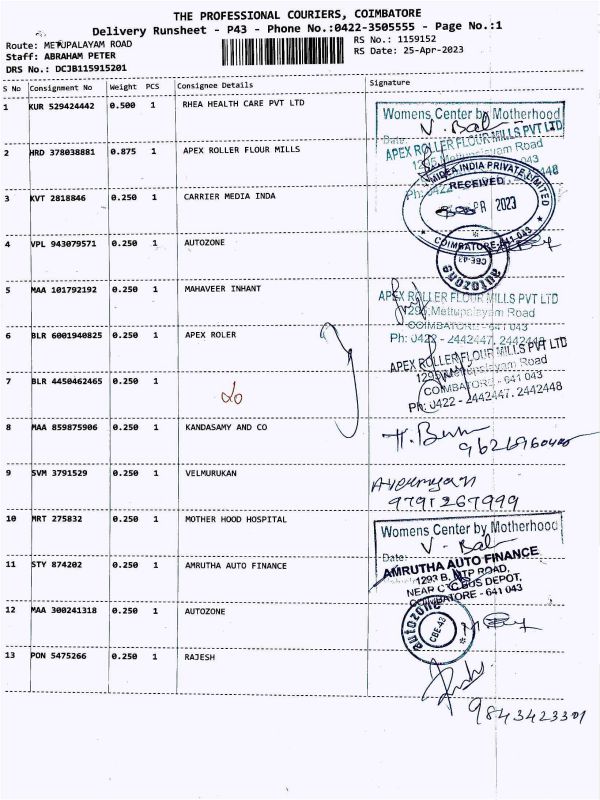 THE PROFESSIONAL COURIERS, COIMBATORE
Delivery Runsheet - P43 - Phone No.:0422-3505555 - Page No.:1
Route: METUPALAYAM ROAD
RS No.: 1159152
Staff: ABRAHAM PETER
RS Date: 25-Apr-2023
DRS No.: DCJB115915201
S No Consignment No Weight PCS Consignee Details Signature
1 KUR 529424442 0.500 1 RHEA HEALTH CARE PVT LTD
Womens Center by Motherhood
Date:
V. Bal
2 HRD 378038881 0.875 1 APEX ROLLER FLOUR MILLS
APEX ROLLER FLOUR MILLS PVT LTD
1295, Mettupalayam Road
Ph: 0422
3 KVT 2818846 0.250 1 CARRIER MEDIA INDA
MIDEA INDIA PRIVATE LIMITED
RECEIVED
APR 2023
COIMBATORE-641 043
4 VPL 943079571 0.250 1 AUTOZONE
autozone
CBE-43
5 MAA 101792192 0.250 1 MAHAVEER INHANT
APEX ROLLER FLOUR MILLS PVT LTD
1295, Mettupalayam Road
COIMBATORE - 641 043
Ph: 0422 - 2442447, 2442448
6 BLR 6001940825 0.250 1 APEX ROLER
APEX ROLLER FLOUR MILLS PVT LTD
1295, Mettupalayam Road
COIMBATORE - 641 043
Ph: 0422 - 2442447, 2442448
7 BLR 4450462465 0.250 1
do
8 MAA 859875906 0.250 1 KANDASAMY AND CO
9 SVM 3791529 0.250 1 VELMURUKAN
9791267999
10 MRT 275832 0.250 1 MOTHER HOOD HOSPITAL
Womens Center by Motherhood
Date:
V. Bal
11 STY 874202 0.250 1 AMRUTHA AUTO FINANCE
AMRUTHA AUTO FINANCE
1293 B, MTP ROAD,
NEAR CTC BUS DEPOT,
COIMBATORE - 641 043
12 MAA 300241318 0.250 1 AUTOZONE
autozone
CBE-43
13 PON 5475266 0.250 1 RAJESH
9843423301